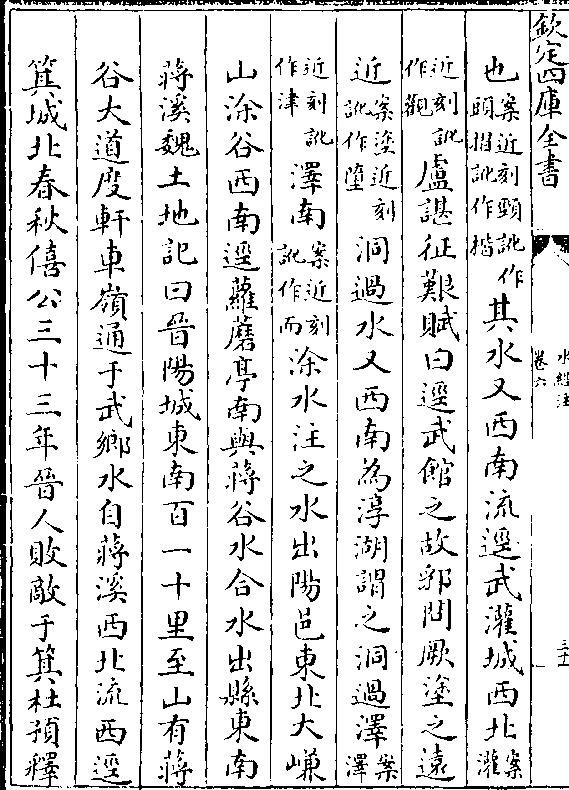 欽定四庫全書
水經注
卷六
也案近刻頸訛作頭揩訛作楷其水又西南流逕武灌城西北案灌
近刻訛作觀盧諶征艱賦曰逕武館之故郛問厥塗之遠
近案塗近刻訛作墮洞過水又西南為淳湖謂之洞過澤案澤
近刻訛作津澤南案近刻訛作而涂水注之水出陽邑東北大嵰
山涂谷西南逕蘿蘑亭南與蔣谷水合水出縣東南
蔣溪魏土地記曰晉陽城東南百一十里至山有蔣
谷大道度軒車嶺通于武鄉水自蔣溪西北流西逕
箕城北春秋僖公三十三年晉人敗敵于箕杜預釋